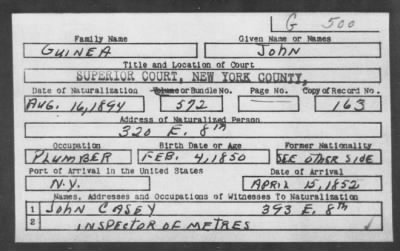 G 500
Family Name Given Name or Names
GUINEA JOHN
Title and Location of Court
SUPERIOR COURT, NEW YORK COUNTY,
Date of Naturalization Volume or Bundle No. Page No. Copy of Record No.
AUG. 16, 1894 572 163
Address of Naturalized Person
320 E. 8th
Occupation Birth Date or Age Former Nationality
PLUMBER FEB. 4, 1850 SEE OTHER SIDE
Port of Arrival in the United States Date of Arrival
N.Y. APRIL 15, 1852
Names, Addresses and Occupations of Witnesses To Naturalization
1 JOHN CASEY 393 E. 8th
2 INSPECTOR OF METRES